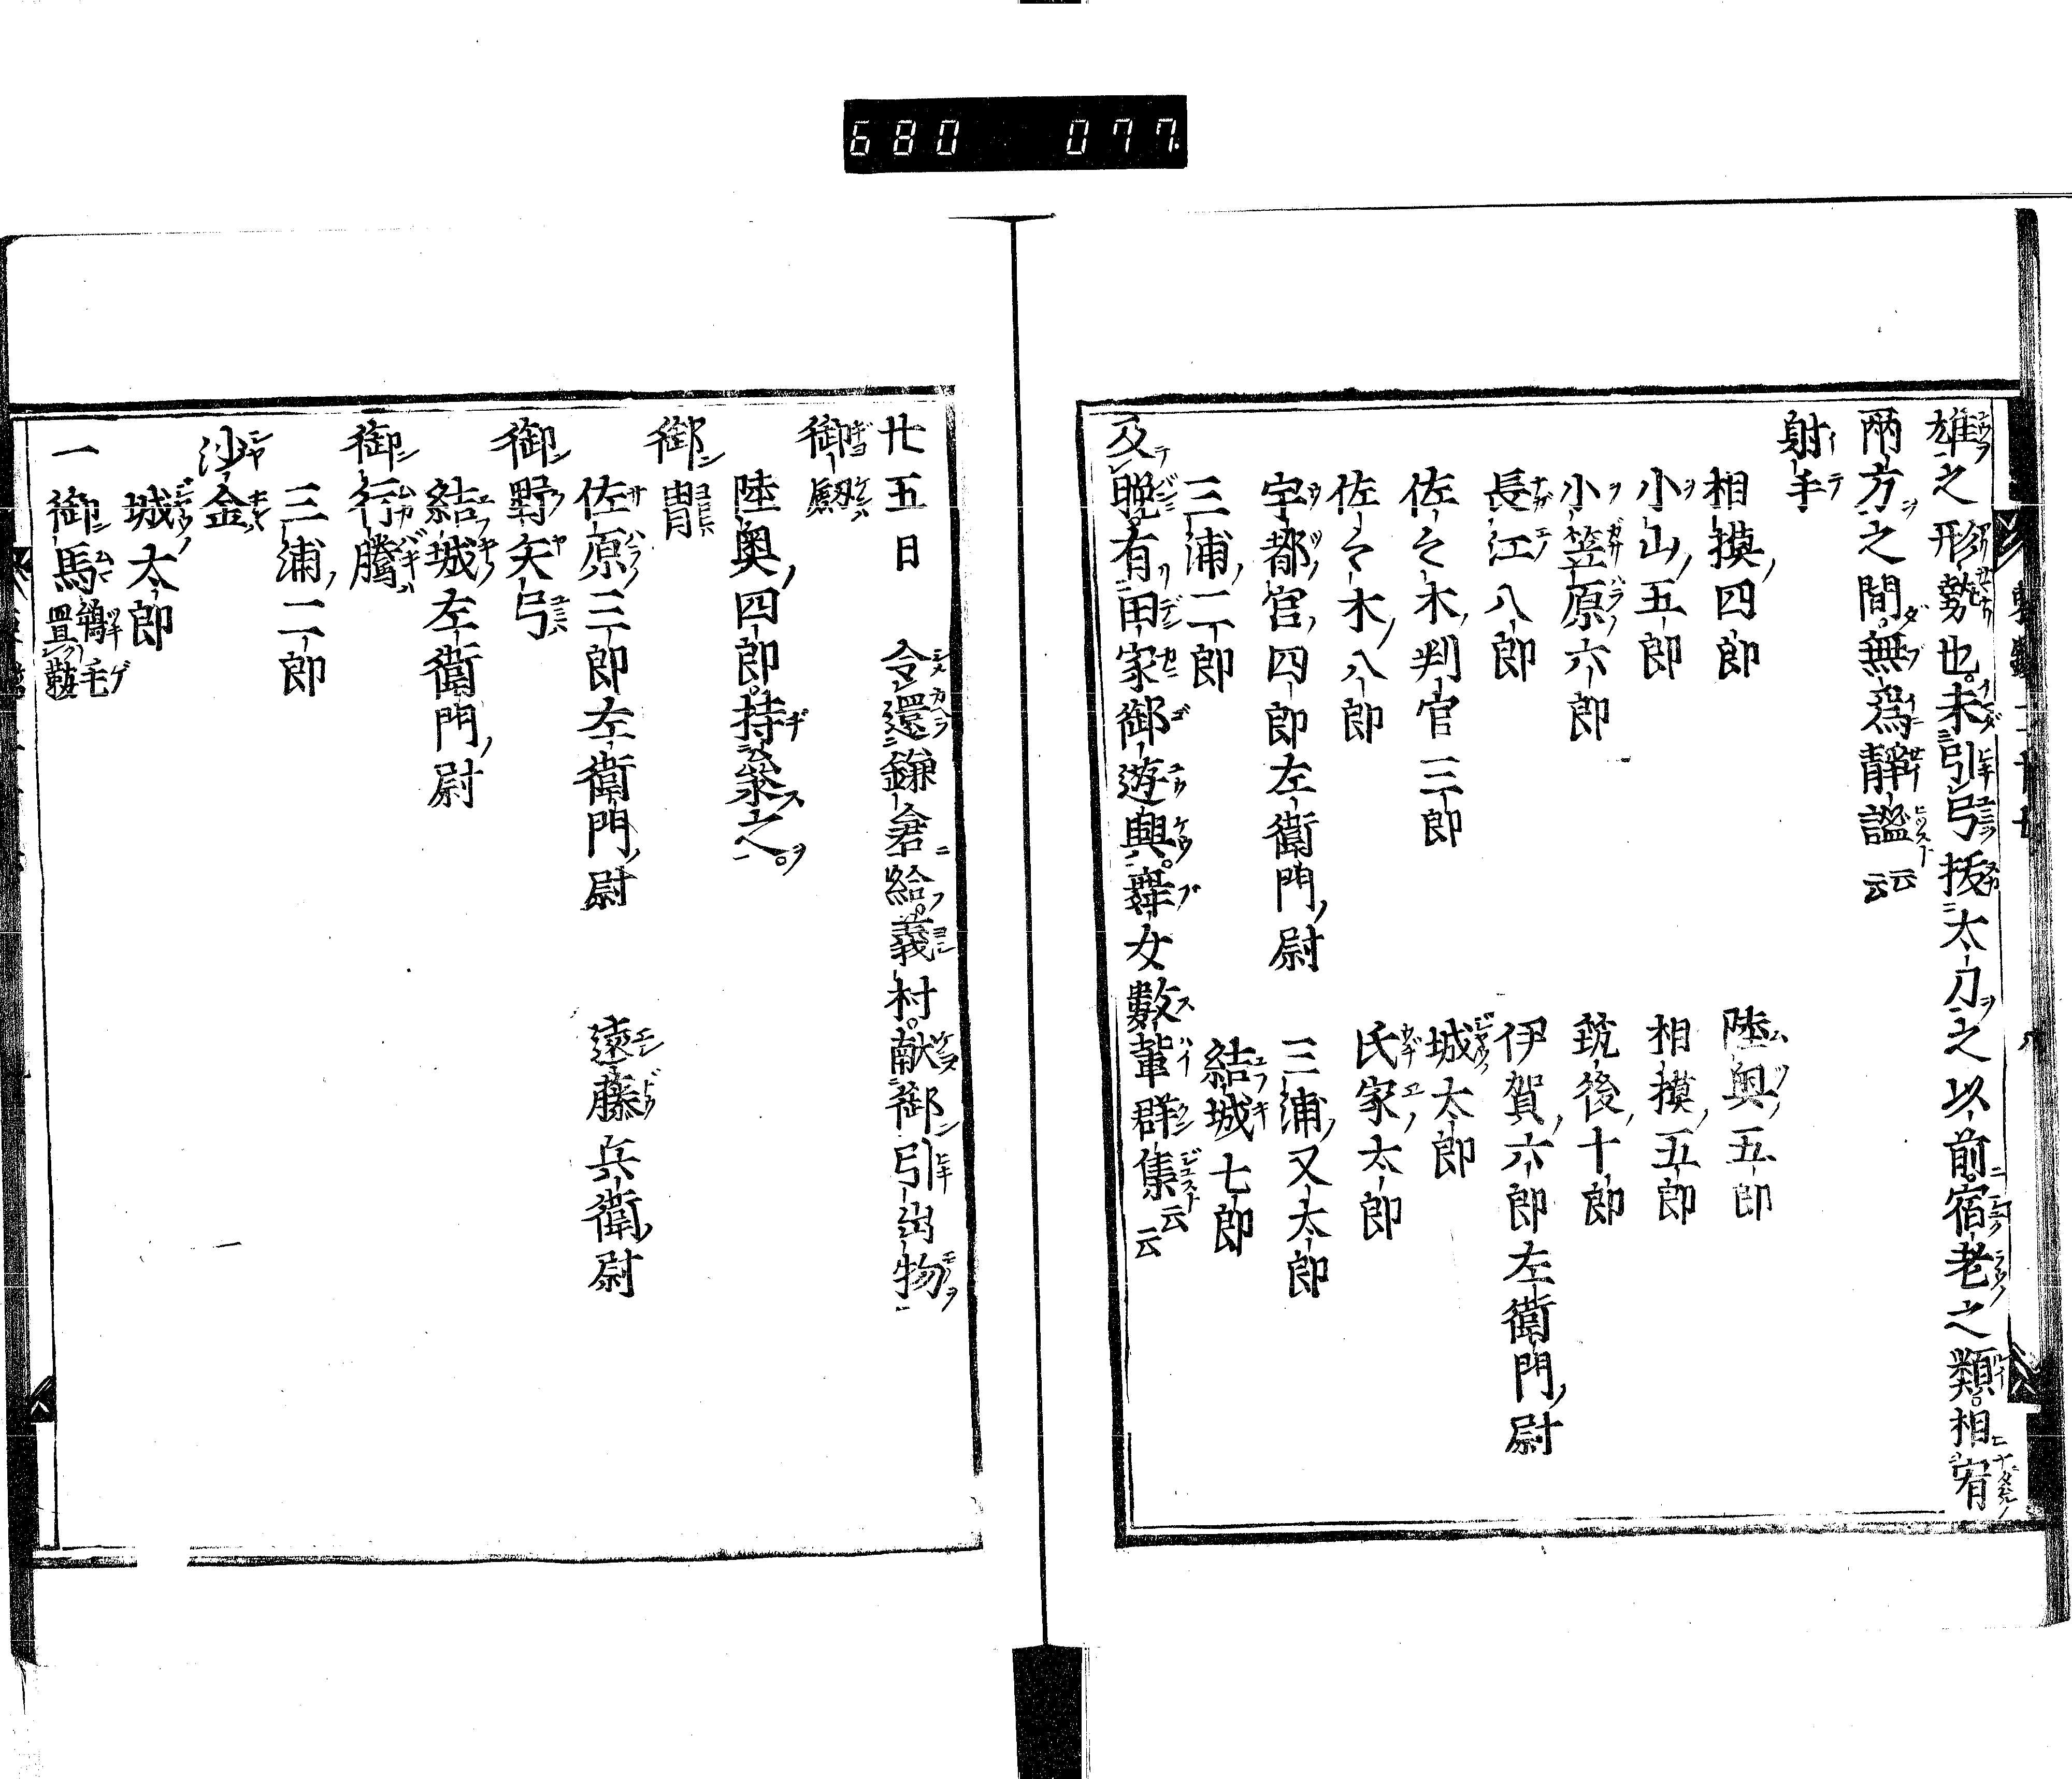 680 077
雄之形勢也。未引弓抜太刀之以前。宿老之類。相宥
兩方之間。無爲靜謐云云
射手
相摸四郎 陸奥五郎
小山五郎 相摸五郎
小笠原六郎 筑後十郎
長江八郎 伊賀六郎左衞門尉
佐々木判官三郎 城太郎
佐々木八郎 氏家太郎
宇都宮四郎左衞門尉 三浦又太郎
三浦二郎 結城七郎
及晩有田家御遊興。舞女數輩群集云云
廿五日 令還鎌倉給。義村。献御引出物
御劔
陸奥四郎。持參之。
御冑
佐原三郎左衞門尉 遠藤兵衞尉
御野矢弓
結城左衞門尉
御行騰
三浦二郎
沙金
城太郎
一御馬鴾毛置鞍